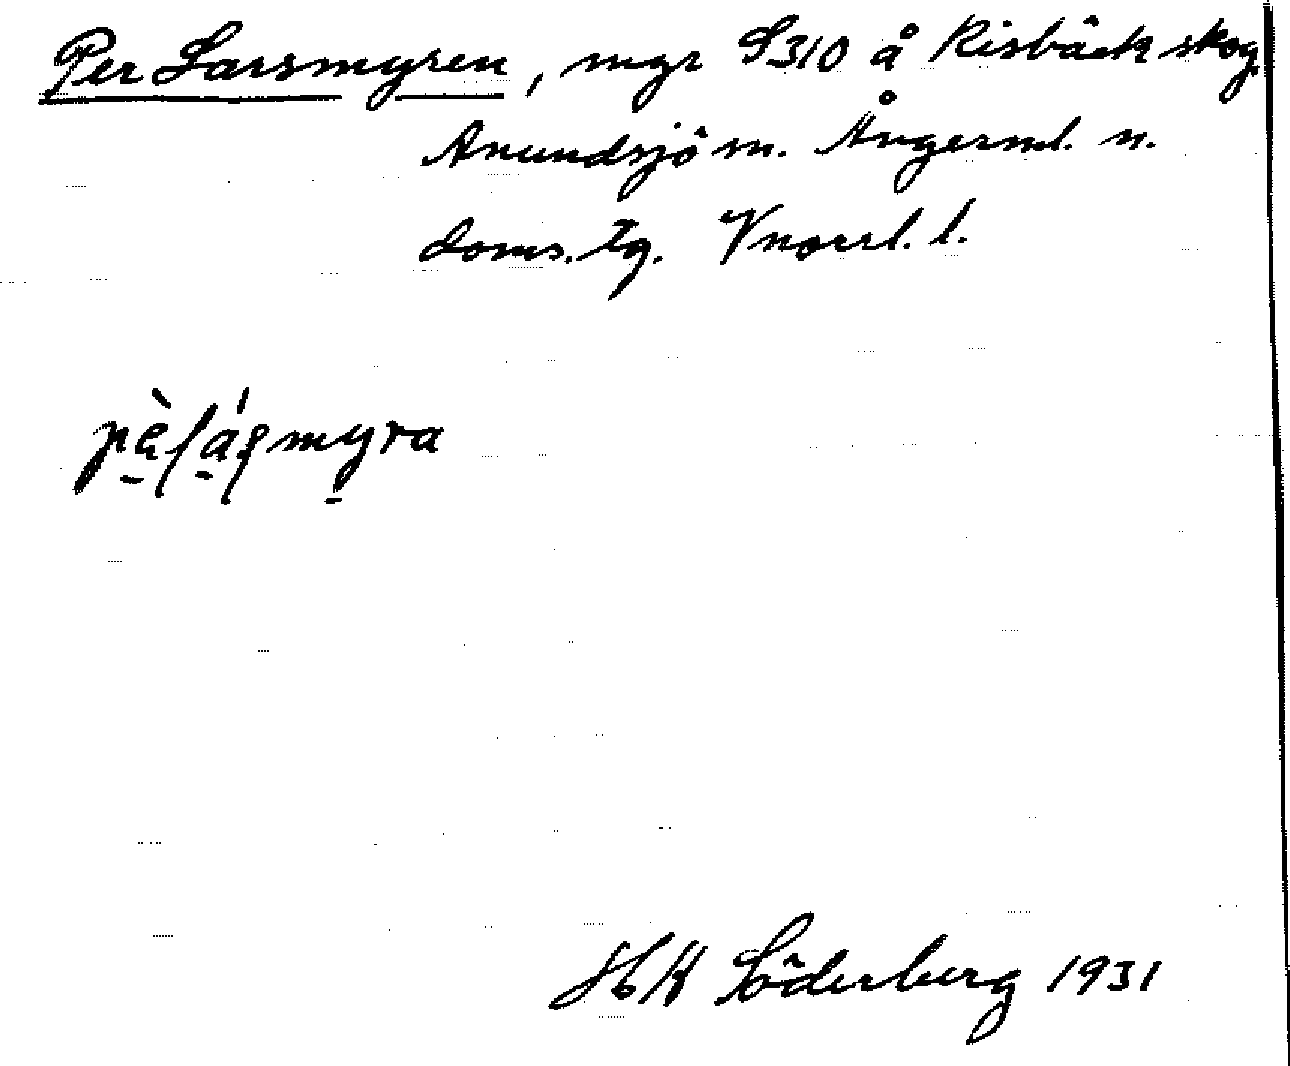 Per Larsmyren, mgr S310 å Risbäck skog.
Anundsjö sn. Ångerml. n.
doms. tg. Vnorrl. l.
HK Söderberg 1931